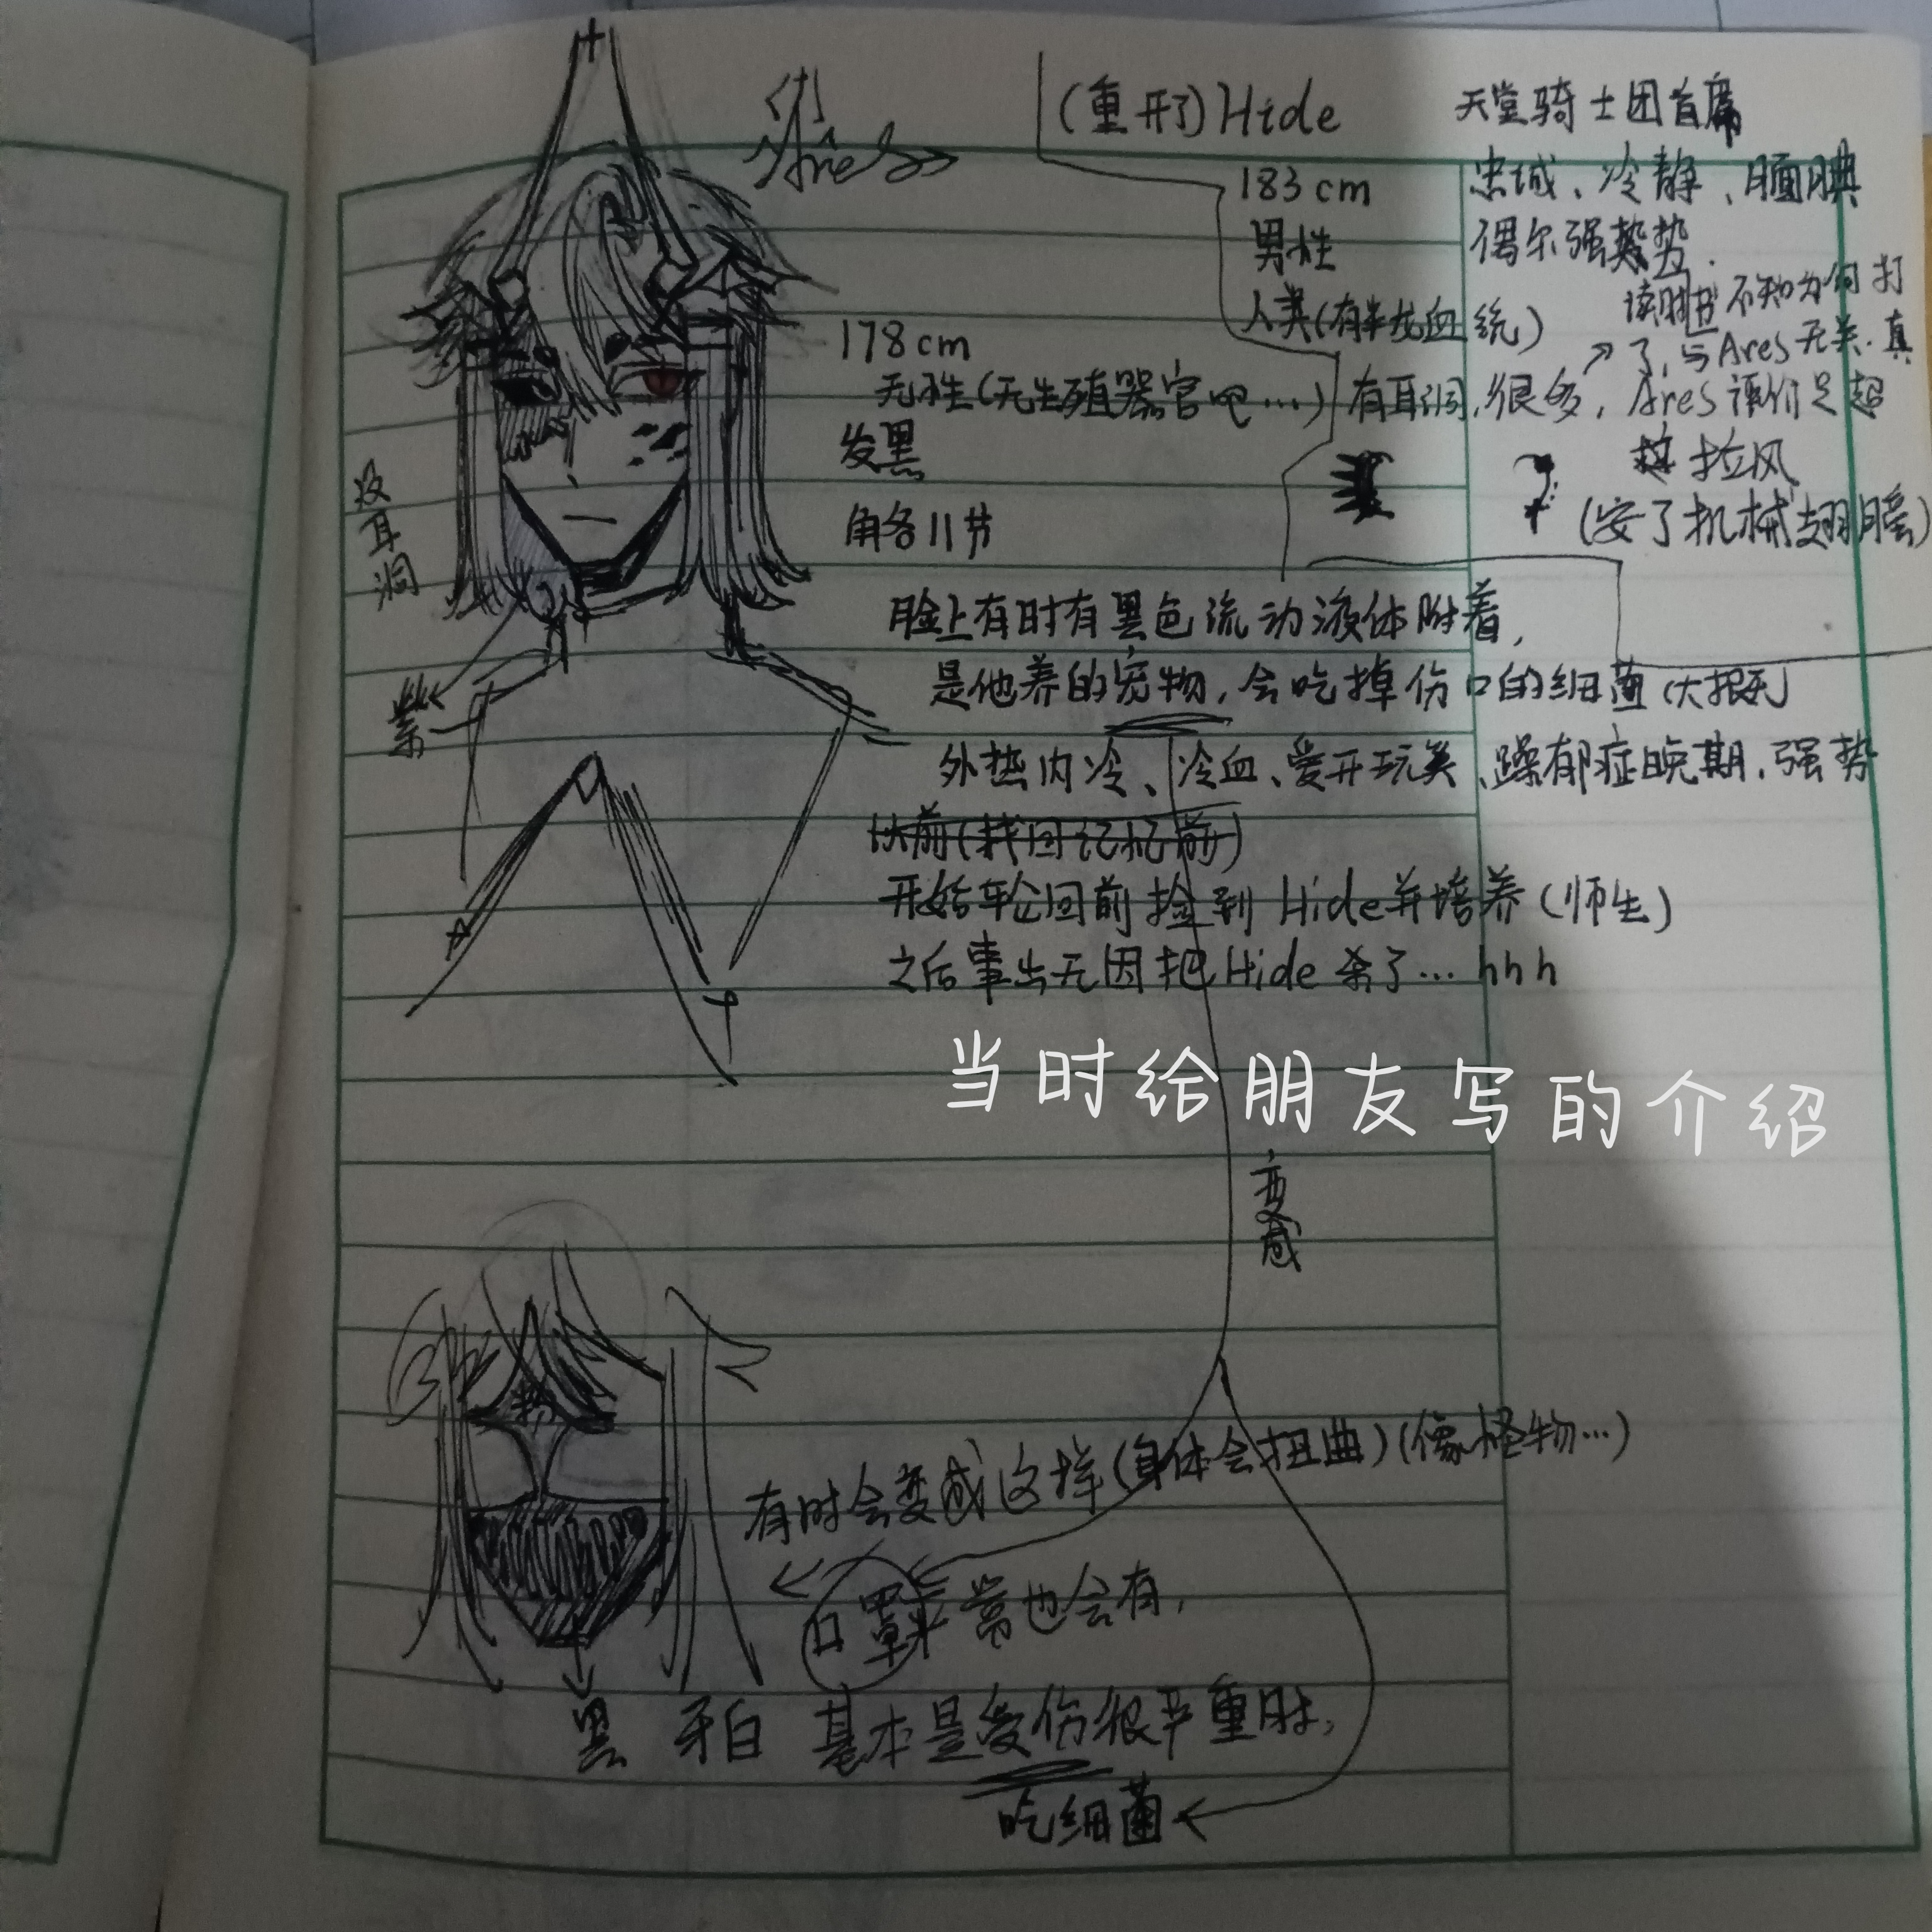 Ares
(重形)Hide
天堂骑士团首席
183cm
男性
人类(有半龙血统)
忠诚、冷静、腼腆
偶尔强势.
读时不知为何打
了,与Ares无关.真
有耳洞,很多,Ares评价是超
拉风
(安了机械翅膀)
178cm
无性(无生殖器官吧…)
发黑
角各11节
没耳洞
紫
脸上有时有黑色流动液体附着,
是他养的宠物,会吃掉伤口的细菌(大抵死)
外热内冷、冷血、爱开玩笑、躁郁症晚期.强势
以前(找回记忆前)
开始轮回前捡到Hide并培养(师生)
之后事出无因把Hide杀了…hhh
当时给朋友写的介绍
变成
有时会变成这样(身体会扭曲)(像怪物…)
口罩 常也会有,
黑 牙白 基本是受伤很严重时,
吃细菌